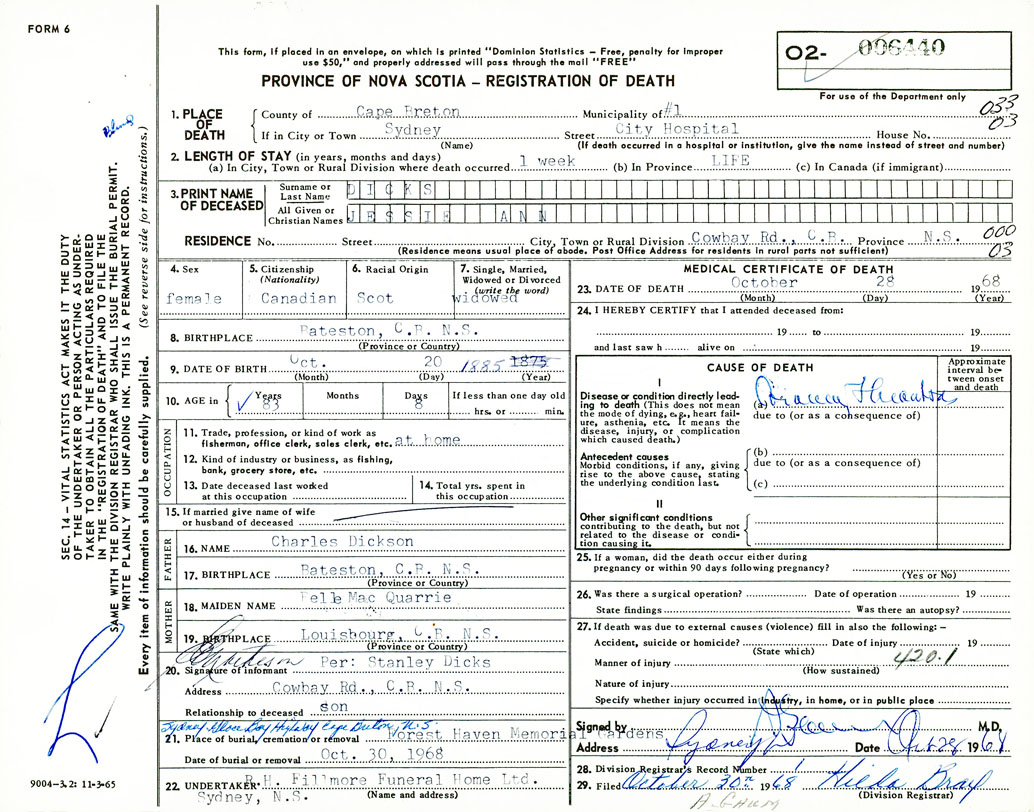 FORM 6
This form, if placed in an envelope, on which is printed "Dominion Statistics – Free, penalty for improper
use $50," and properly addressed will pass through the mail "FREE"
PROVINCE OF NOVA SCOTIA – REGISTRATION OF DEATH
02- 006440
For use of the Department only
033
03
1. PLACE OF DEATH
County of Cape Breton Municipality of #1
If in City or Town Sydney Street City Hospital House No.
(Name) (If death occurred in a hospital or institution, give the name instead of street and number)
2. LENGTH OF STAY (in years, months and days)
(a) In City, Town or Rural Division where death occurred 1 week (b) In Province LIFE (c) In Canada (if immigrant)
3. PRINT NAME OF DECEASED
Surname or Last Name DICKS
All Given or Christian Names JESSIE ANN
RESIDENCE No. Street City, Town or Rural Division Cowbay Rd., C.B. Province N.S.
(Residence means usual place of abode. Post Office Address for residents in rural parts not sufficient)
000
03
4. Sex
female
5. Citizenship (Nationality)
Canadian
6. Racial Origin
Scot
7. Single, Married, Widowed or Divorced (write the word)
widowed
8. BIRTHPLACE Bateston, C.B. N.S.
(Province or Country)
9. DATE OF BIRTH Oct. 20 1885 1875
(Month) (Day) (Year)
10. AGE in Years Months Days If less than one day old
83 8 hrs. or min.
OCCUPATION
11. Trade, profession, or kind of work as
fisherman, office clerk, sales clerk, etc. at home
12. Kind of industry or business, as fishing,
bank, grocery store, etc.
13. Date deceased last worked
at this occupation
14. Total yrs. spent in
this occupation
15. If married give name of wife
or husband of deceased
FATHER
16. NAME Charles Dickson
17. BIRTHPLACE Bateston, C.B. N.S.
(Province or Country)
MOTHER
18. MAIDEN NAME Belle Mac Quarrie
19. BIRTHPLACE Louisbourg, C.B. N.S.
(Province or Country)
20. Signature of informant Per: Stanley Dicks
Address Cowbay Rd., C.B. N.S.
Relationship to deceased son
Sydney Glace Bay Highway Cape Breton, N.S.
21. Place of burial, cremation or removal Forest Haven Memorial Gardens
Date of burial or removal Oct. 30, 1968
22. UNDERTAKER R.H. Fillmore Funeral Home Ltd.
Sydney, N.S. (Name and address)
MEDICAL CERTIFICATE OF DEATH
23. DATE OF DEATH October 28 1968
(Month) (Day) (Year)
24. I HEREBY CERTIFY that I attended deceased from:
19 to 19
and last saw h alive on 19
CAUSE OF DEATH
Approximate interval between onset and death
I
Disease or condition directly lead-
ing to death (This does not
mean the mode of dying, e.g., heart fail-
ure, asthenia, etc. It means the
disease, injury, or complication
which caused death.)
(a)
due to (or as a consequence of)
Antecedent causes
Morbid conditions, if any, giving
rise to the above cause, stating
the underlying condition last.
(b)
due to (or as a consequence of)
(c)
II
Other significant conditions
contributing to the death, but not
related to the disease or condi-
tion causing it.
25. If a woman, did the death occur either during
pregnancy or within 90 days following pregnancy?
(Yes or No)
26. Was there a surgical operation? Date of operation 19
State findings Was there an autopsy?
27. If death was due to external causes (violence) fill in also the following: –
Accident, suicide or homicide? Date of injury 19
(State which)
Manner of injury 420.1
(How sustained)
Nature of injury
Specify whether injury occurred in Industry, in home, or in public place
Signed by M.D.
Address Sydney Date Oct 28 1968
28. Division Registrar's Record Number 1
29. Filed October 30th 1968 Hilda Bray
(Division Registrar)
SEC. 14 – VITAL STATISTICS ACT MAKES IT THE DUTY
OF THE UNDERTAKER OR PERSON ACTING AS UNDER-
TAKER TO OBTAIN ALL THE PARTICULARS REQUIRED
IN THE "REGISTRATION OF DEATH" AND TO FILE THE
SAME WITH THE DIVISION REGISTRAR WHO SHALL ISSUE THE BURIAL PERMIT.
WRITE PLAINLY WITH UNFADING INK. THIS IS A PERMANENT RECORD.
Every item of information should be carefully supplied. (See reverse side for instructions.)
9004–3.2: 11-3-65